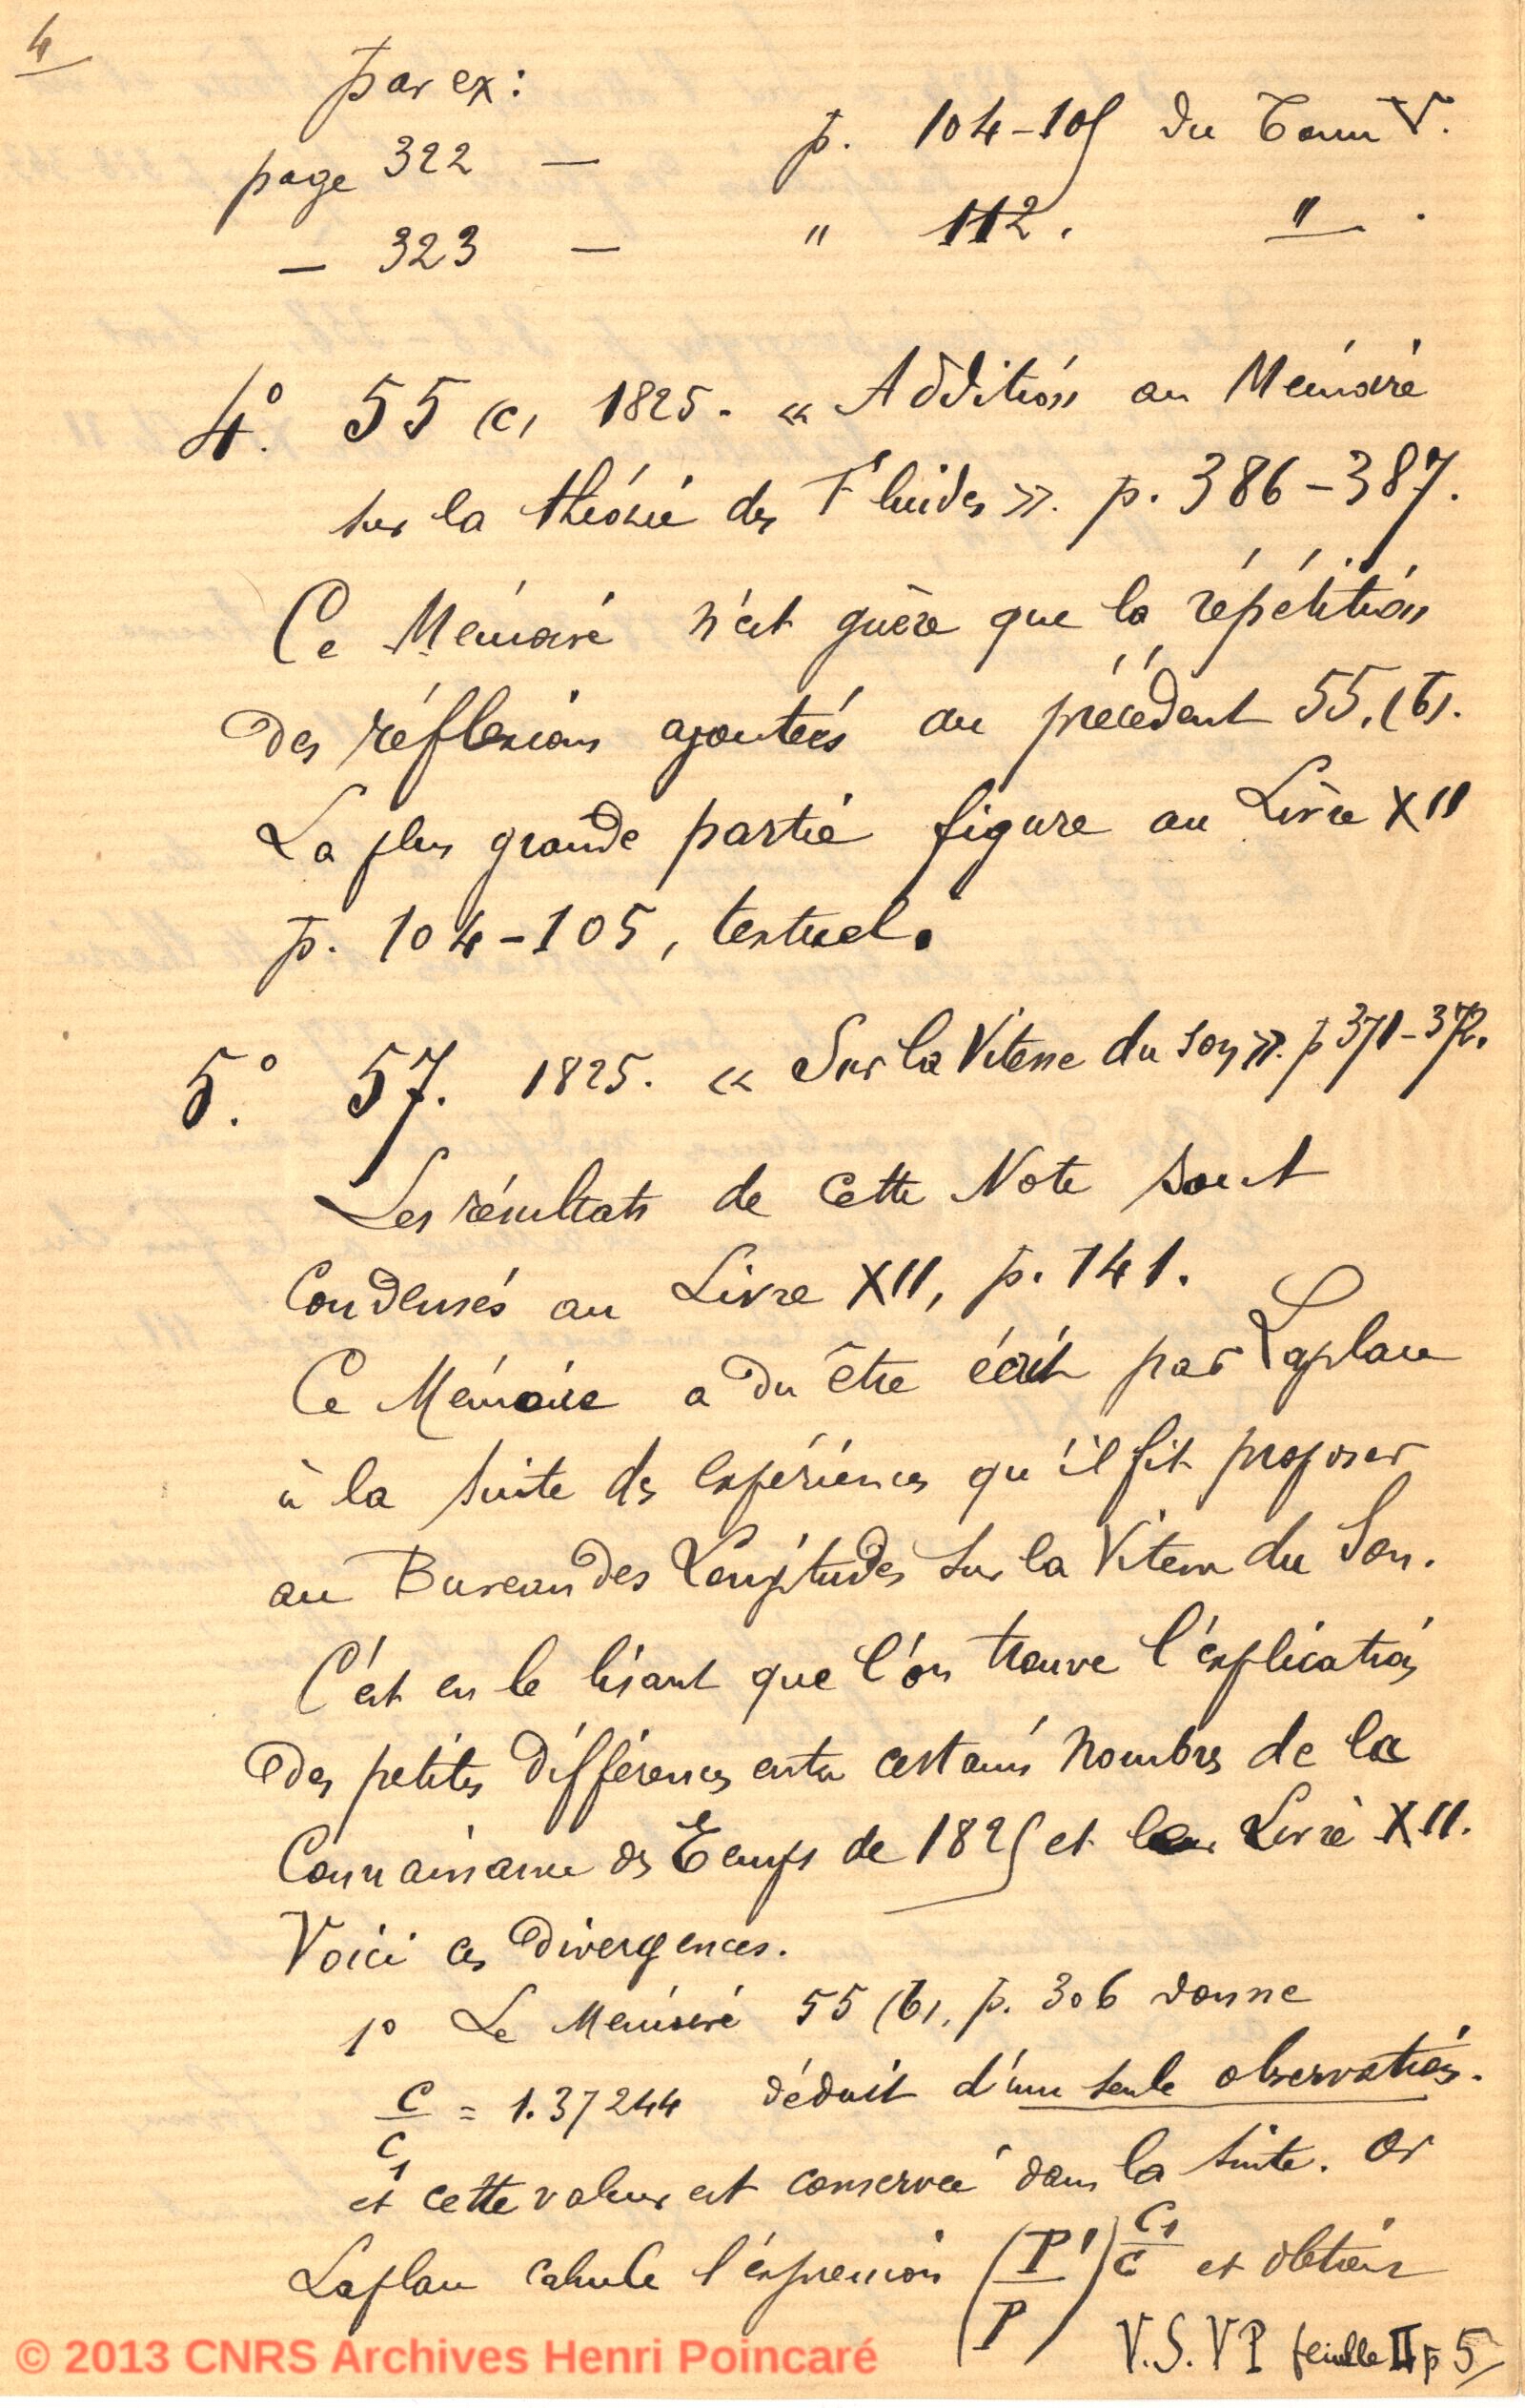 4
par ex:
page 322 — p. 104-105 du Tome V.
— 323 — " 112. " .
4.° 55 (c) 1825. « Addition au Mémoire
sur la théorie des Fluides ». p. 386-387.
Ce Mémoire n'est guère que la répétition
des réflexions ajoutées au précédent 55.(b).
La plus grande partie figure au Livre XII
p. 104-105, textuel.
5.° 57. 1825. « Sur la Vitesse du son ». p 371-372.
Les résultats de cette Note sont
condensés au Livre XII, p. 141.
Ce Mémoire a du être écrit par Laplace
à la suite des expériences qu'il fit proposer
au Bureau des Longitudes sur la Vitesse du Son.
C'est en le lisant que l'on trouve l'explication
des petites différences entre certains nombres de la
Connaissance des Temps de 1825 et le Livre XII.
Voici ces divergences.
1° Le Mémoire 55 (b), p. 306 donne
c/c₁ = 1.37244 déduit d'une seule observation.
et cette valeur est conservée dans la suite. Or
Laplace calcule l'expression (P'/P)^(c₁/c) et obtient
V.S.V P feuille II p 5
© 2013 CNRS Archives Henri Poincaré